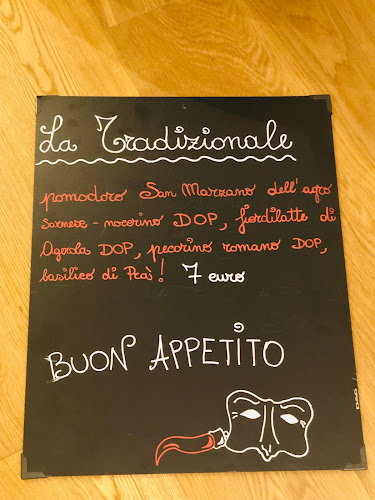 La Tradizionale
pomodoro San Marzano dell'agro
sarnese-nocerino DOP, fiordilatte di
Agerola DOP, pecorino romano DOP,
basilico di Prà! 7 euro
BUON APPETITO